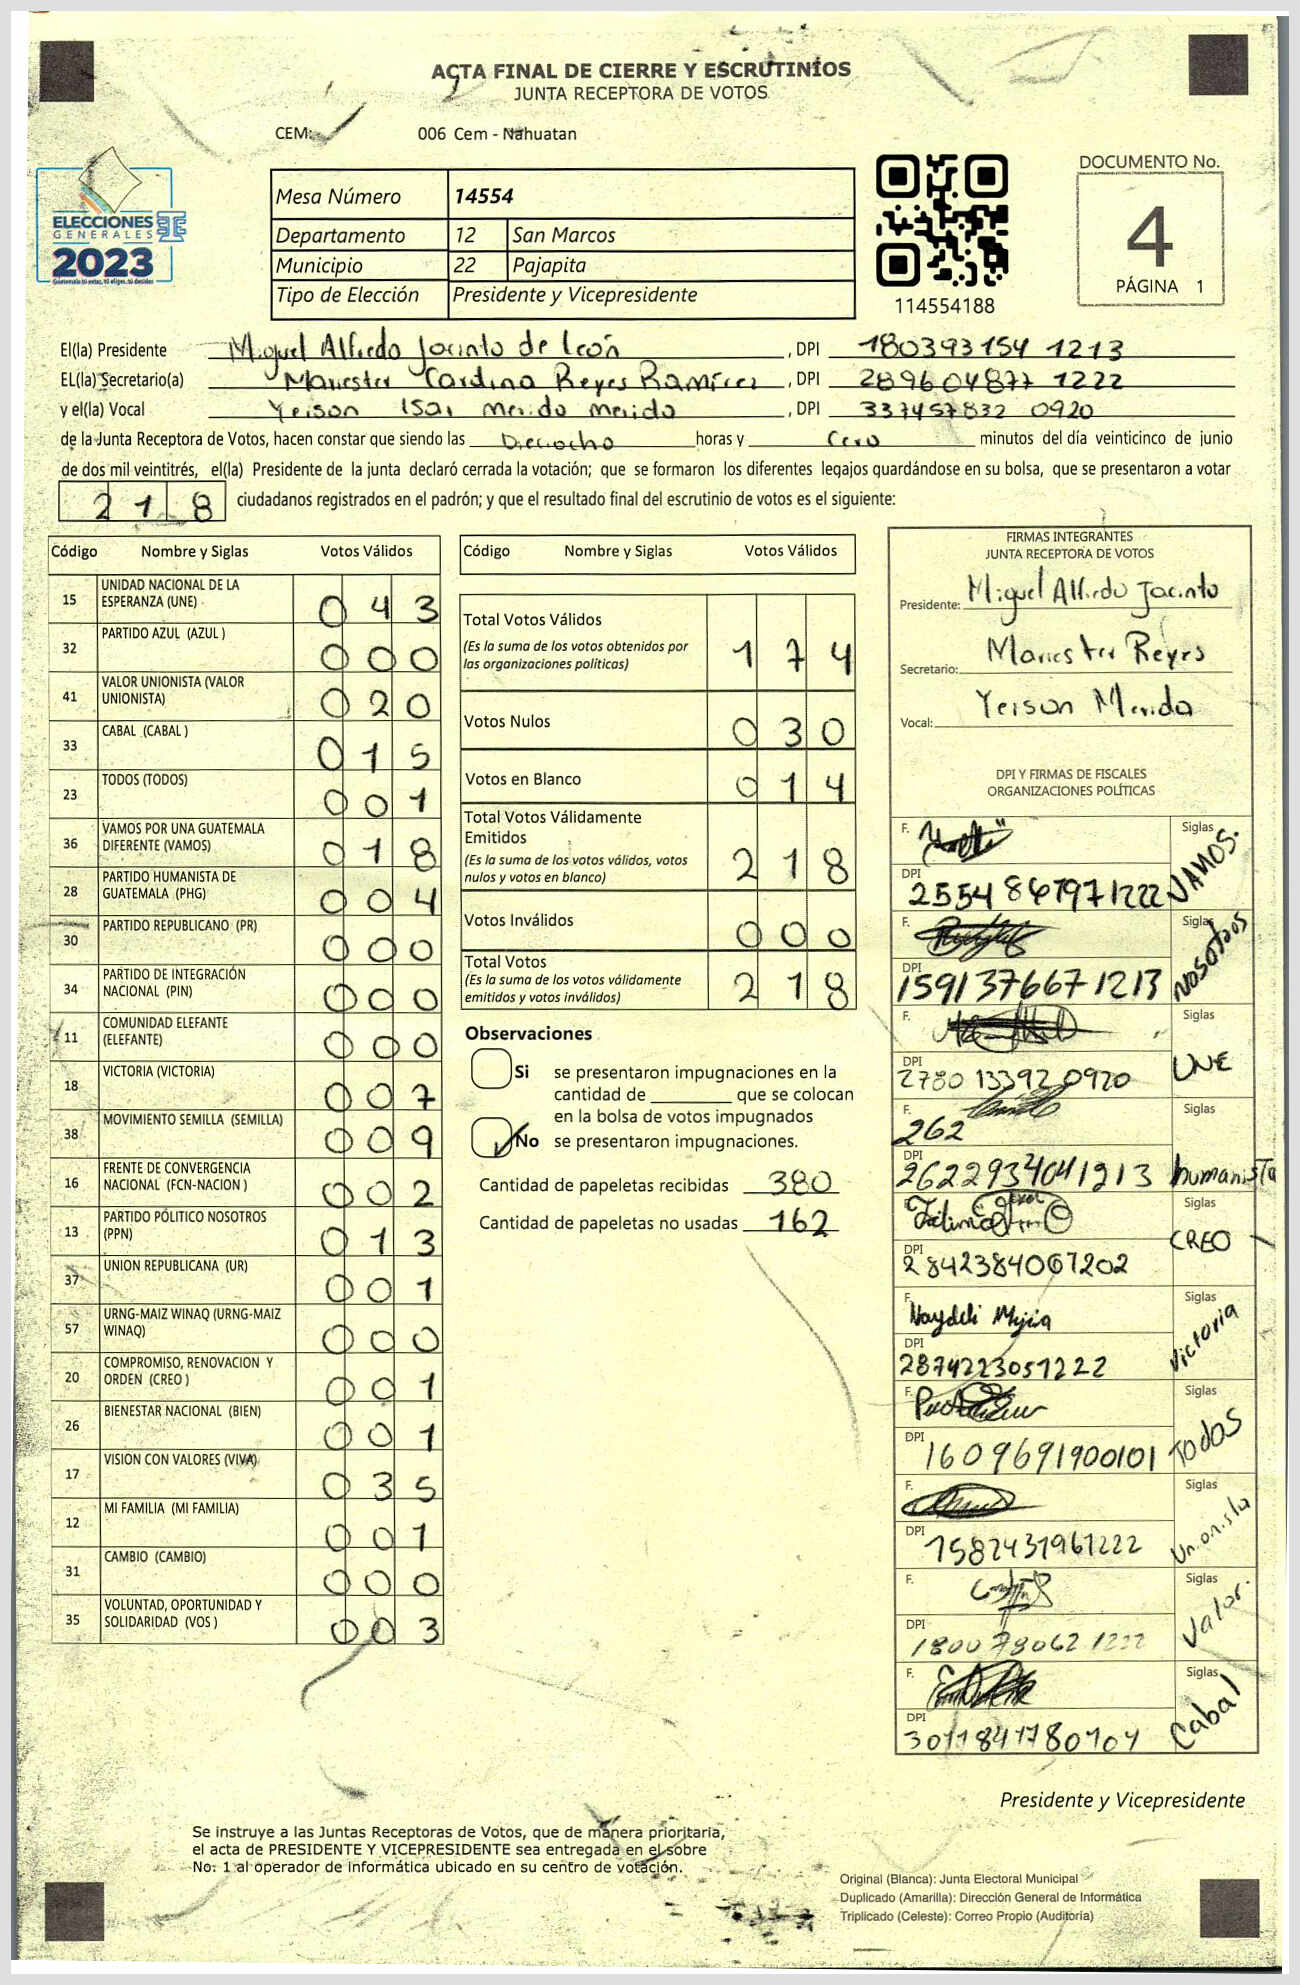 ACTA FINAL DE CIERRE Y ESCRUTINIOS
JUNTA RECEPTORA DE VOTOS
CEM: 006 Cem - Nahuatan
ELECCIONES
GENERALES
2023
Mesa Número 14554
Departamento 12 San Marcos
Municipio 22 Pajapita
Tipo de Elección Presidente y Vicepresidente
114554188
DOCUMENTO No.
4
PÁGINA 1
El(la) Presidente Miguel Alfredo Jacinto de León, DPI 180393154 1213
EL(la) Secretario(a) Mariester Cardina Reyes Ramírez, DPI 289604877 1222
y el(la) Vocal Yeison Isai merida merida, DPI 337457832 0920
de la Junta Receptora de Votos, hacen constar que siendo las Dieciocho horas y Cero minutos del día veinticinco de junio
de dos mil veintitrés, el(la) Presidente de la junta declaró cerrada la votación; que se formaron los diferentes legajos guardándose en su bolsa, que se presentaron a votar
218 ciudadanos registrados en el padrón; y que el resultado final del escrutinio de votos es el siguiente:
Código Nombre y Siglas Votos Válidos
15 UNIDAD NACIONAL DE LA ESPERANZA (UNE) 043
32 PARTIDO AZUL (AZUL ) 000
41 VALOR UNIONISTA (VALOR UNIONISTA) 020
33 CABAL (CABAL ) 015
23 TODOS (TODOS) 001
36 VAMOS POR UNA GUATEMALA DIFERENTE (VAMOS) 018
28 PARTIDO HUMANISTA DE GUATEMALA (PHG) 004
30 PARTIDO REPUBLICANO (PR) 000
34 PARTIDO DE INTEGRACIÓN NACIONAL (PIN) 000
11 COMUNIDAD ELEFANTE (ELEFANTE) 000
18 VICTORIA (VICTORIA) 007
38 MOVIMIENTO SEMILLA (SEMILLA) 009
16 FRENTE DE CONVERGENCIA NACIONAL (FCN-NACION ) 002
13 PARTIDO PÓLITICO NOSOTROS (PPN) 013
37 UNION REPUBLICANA (UR) 001
57 URNG-MAIZ WINAQ (URNG-MAIZ WINAQ) 000
20 COMPROMISO, RENOVACION Y ORDEN (CREO ) 001
26 BIENESTAR NACIONAL (BIEN) 001
17 VISION CON VALORES (VIVA) 035
12 MI FAMILIA (MI FAMILIA) 001
31 CAMBIO (CAMBIO) 000
35 VOLUNTAD, OPORTUNIDAD Y SOLIDARIDAD (VOS ) 003
Código Nombre y Siglas Votos Válidos
Total Votos Válidos 174
(Es la suma de los votos obtenidos por
las organizaciones politicas)
Votos Nulos 030
Votos en Blanco 014
Total Votos Válidamente
Emitidos 218
(Es la suma de los votos válidos, votos
nulos y votos en blanco)
Votos Inválidos 000
Total Votos 218
(Es la suma de los votos válidamente
emitidos y votos inválidos)
Observaciones
Si se presentaron impugnaciones en la
cantidad de ________ que se colocan
en la bolsa de votos impugnados
No se presentaron impugnaciones.
Cantidad de papeletas recibidas 380
Cantidad de papeletas no usadas 162
FIRMAS INTEGRANTES
JUNTA RECEPTORA DE VOTOS
Presidente: Miguel Alfredo Jacinto
Secretario: Mariester Reyes
Vocal: Yeison Merida
DPI Y FIRMAS DE FISCALES
ORGANIZACIONES POLÍTICAS
F. Siglas VAMOS.
DPI 2554 867971222
F. Siglas NOSOTROS
DPI 1591376671213
F. Siglas UNE
DPI 2780 13392 0920
F. 262 Siglas humanista
DPI 2622934041213
F. Siglas CREO
DPI 2842384061202
F. Naydeli Mejia Siglas Victoria
DPI 2874223051222
F. Siglas TODOS
DPI 1609691900101
F. Siglas Unionista
DPI 1582431961222
F. Siglas Valor.
DPI 1800780621222
F. Siglas Cabal
DPI 3011841780101
Presidente y Vicepresidente
Se instruye a las Juntas Receptoras de Votos, que de manera prioritaria,
el acta de PRESIDENTE Y VICEPRESIDENTE sea entregada en el sobre
No. 1 al operador de informática ubicado en su centro de votación.
Original (Blanca): Junta Electoral Municipal
Duplicado (Amarilla): Dirección General de Informática
Triplicado (Celeste): Correo Propio (Auditoría)